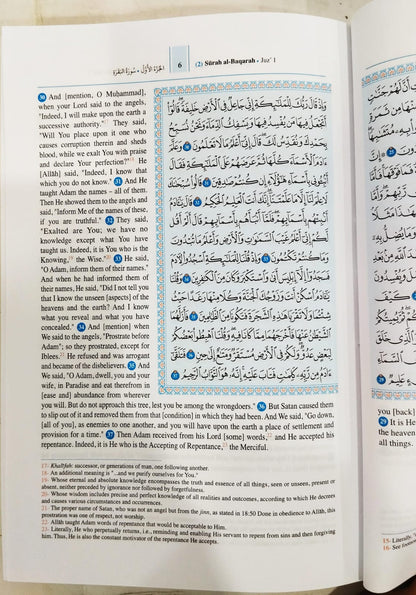 الجُزْءُ الأَوَّلُ - سُورَةُ البَقَرَةِ
6
(2) Sūrah al-Baqarah - Juz' 1
30 And [mention, O Muḥammad],
when your Lord said to the angels,
"Indeed, I will make upon the earth a
successive authority."17 They said,
"Will You place upon it one who
causes corruption therein and sheds
blood, while we exalt You with praise
and declare Your perfection?"18 He
[Allāh] said, "Indeed, I know that
which you do not know." 31 And He
taught Adam the names – all of them.
Then He showed them to the angels and
said, "Inform Me of the names of these,
if you are truthful." 32 They said,
"Exalted are You; we have no
knowledge except what You have
taught us. Indeed, it is You who is the
Knowing,19 the Wise."20 33 He said,
"O Adam, inform them of their names."
And when he had informed them of
their names, He said, "Did I not tell you
that I know the unseen [aspects] of the
heavens and the earth? And I know
what you reveal and what you have
concealed." 34 And [mention] when
We said to the angels, "Prostrate before
Adam"; so they prostrated, except for
Iblees.21 He refused and was arrogant
and became of the disbelievers. 35 And
We said, "O Adam, dwell, you and your
wife, in Paradise and eat therefrom in
[ease and] abundance from wherever
you will. But do not approach this tree, lest you be among the wrongdoers." 36 But Satan caused them
to slip out of it and removed them from that [condition] in which they had been. And We said, "Go down,
[all of you], as enemies to one another, and you will have upon the earth a place of settlement and
provision for a time." 37 Then Adam received from his Lord [some] words,22 and He accepted his
repentance. Indeed, it is He who is the Accepting of Repentance,23 the Merciful.
وَإِذْ قَالَ رَبُّكَ لِلْمَلَٰٓئِكَةِ إِنِّي جَاعِلٌ فِي ٱلْأَرْضِ خَلِيفَةً قَالُوٓا۟
أَتَجْعَلُ فِيهَا مَن يُفْسِدُ فِيهَا وَيَسْفِكُ ٱلدِّمَآءَ وَنَحْنُ نُسَبِّحُ
بِحَمْدِكَ وَنُقَدِّسُ لَكَ قَالَ إِنِّيٓ أَعْلَمُ مَا لَا تَعْلَمُونَ ٣٠ وَعَلَّمَ
ءَادَمَ ٱلْأَسْمَآءَ كُلَّهَا ثُمَّ عَرَضَهُمْ عَلَى ٱلْمَلَٰٓئِكَةِ فَقَالَ
أَنۢبِـُٔونِي بِأَسْمَآءِ هَٰٓؤُلَآءِ إِن كُنتُمْ صَٰدِقِينَ ٣١ قَالُوا۟ سُبْحَٰنَكَ
لَا عِلْمَ لَنَآ إِلَّا مَا عَلَّمْتَنَآ إِنَّكَ أَنتَ ٱلْعَلِيمُ ٱلْحَكِيمُ ٣٢ قَالَ يَٰٓـَٔادَمُ
أَنۢبِئْهُم بِأَسْمَآئِهِمْ فَلَمَّآ أَنۢبَأَهُم بِأَسْمَآئِهِمْ قَالَ أَلَمْ أَقُل
لَّكُمْ إِنِّيٓ أَعْلَمُ غَيْبَ ٱلسَّمَٰوَٰتِ وَٱلْأَرْضِ وَأَعْلَمُ مَا تُبْدُونَ
وَمَا كُنتُمْ تَكْتُمُونَ ٣٣ وَإِذْ قُلْنَا لِلْمَلَٰٓئِكَةِ ٱسْجُدُوا۟ لِءَادَمَ
فَسَجَدُوٓا۟ إِلَّآ إِبْلِيسَ أَبَىٰ وَٱسْتَكْبَرَ وَكَانَ مِنَ ٱلْكَٰفِرِينَ ٣٤ وَقُلْنَا
يَٰٓـَٔادَمُ ٱسْكُنْ أَنتَ وَزَوْجُكَ ٱلْجَنَّةَ وَكُلَا مِنْهَا رَغَدًا حَيْثُ
شِئْتُمَا وَلَا تَقْرَبَا هَٰذِهِ ٱلشَّجَرَةَ فَتَكُونَا مِنَ ٱلظَّٰلِمِينَ ٣٥ فَأَزَلَّهُمَا
ٱلشَّيْطَٰنُ عَنْهَا فَأَخْرَجَهُمَا مِمَّا كَانَا فِيهِ وَقُلْنَا ٱهْبِطُوا۟ بَعْضُكُمْ
لِبَعْضٍ عَدُوٌّ وَلَكُمْ فِي ٱلْأَرْضِ مُسْتَقَرٌّ وَمَتَٰعٌ إِلَىٰ حِينٍ ٣٦ فَتَلَقَّىٰٓ
ءَادَمُ مِن رَّبِّهِ كَلِمَٰتٍ فَتَابَ عَلَيْهِ إِنَّهُ هُوَ ٱلتَّوَّابُ ٱلرَّحِيمُ ٣٧
17- Khalīfah: successor, or generations of man, one following another.
18- An additional meaning is "...and we purify ourselves for You."
19- Whose eternal and absolute knowledge encompasses the truth and essence of all things, seen or unseen, present or
absent, neither preceded by ignorance nor followed by forgetfulness.
20- Whose wisdom includes precise and perfect knowledge of all realities and outcomes, according to which He decrees
and causes various circumstances and occurrences.
21- The proper name of Satan, who was not an angel but from the jinn, as stated in 18:50 Done in obedience to Allāh, this
prostration was one of respect, not worship.
22- Allāh taught Adam words of repentance that would be acceptable to Him.
23- Literally, He who perpetually returns, i.e., reminding and enabling His servant to repent from sins and then forgiving
him. Thus, He is also the constant motivator of repentance He accepts.
you [back]
29 It is H
the heaven
all things.
15- Literally, "
16- See footnote